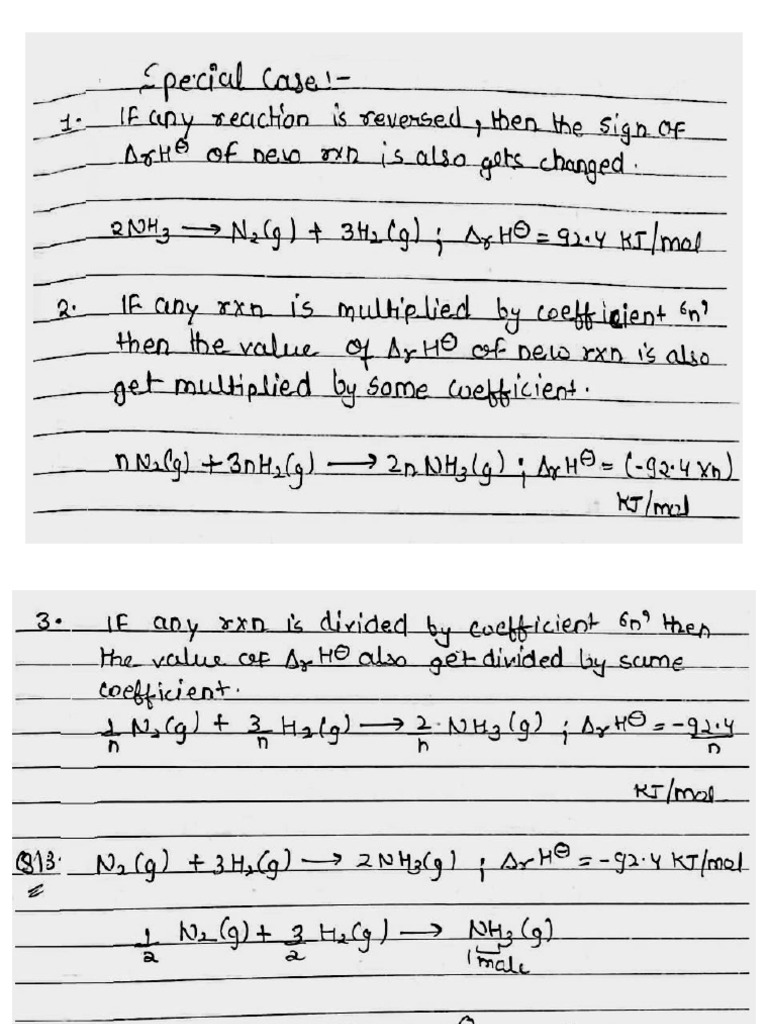 Special Case:-
1. If any reaction is reversed, then the sign of
ΔrH⊖ of new rxn is also gets changed.
2NH₃ → N₂(g) + 3H₂(g); ΔrH⊖ = 92.4 KJ/mol
2. If any rxn is multiplied by coefficient 'n'
then the value of ΔrH⊖ of new rxn is also
get multiplied by same coefficient.
nN₂(g) + 3nH₂(g) → 2nNH₃(g); ΔrH⊖ = (-92.4xn)
KJ/mol
3. If any rxn is divided by coefficient 'n' then
the value of ΔrH⊖ also get divided by same
coefficient.
1/n N₂(g) + 3/n H₂(g) → 2/n NH₃(g); ΔrH⊖ = -92.4/n
KJ/mol
Q13. N₂(g) + 3H₂(g) → 2NH₃(g); ΔrH⊖ = -92.4 KJ/mol
1/2 N₂(g) + 3/2 H₂(g) → NH₃(g)
1 mole